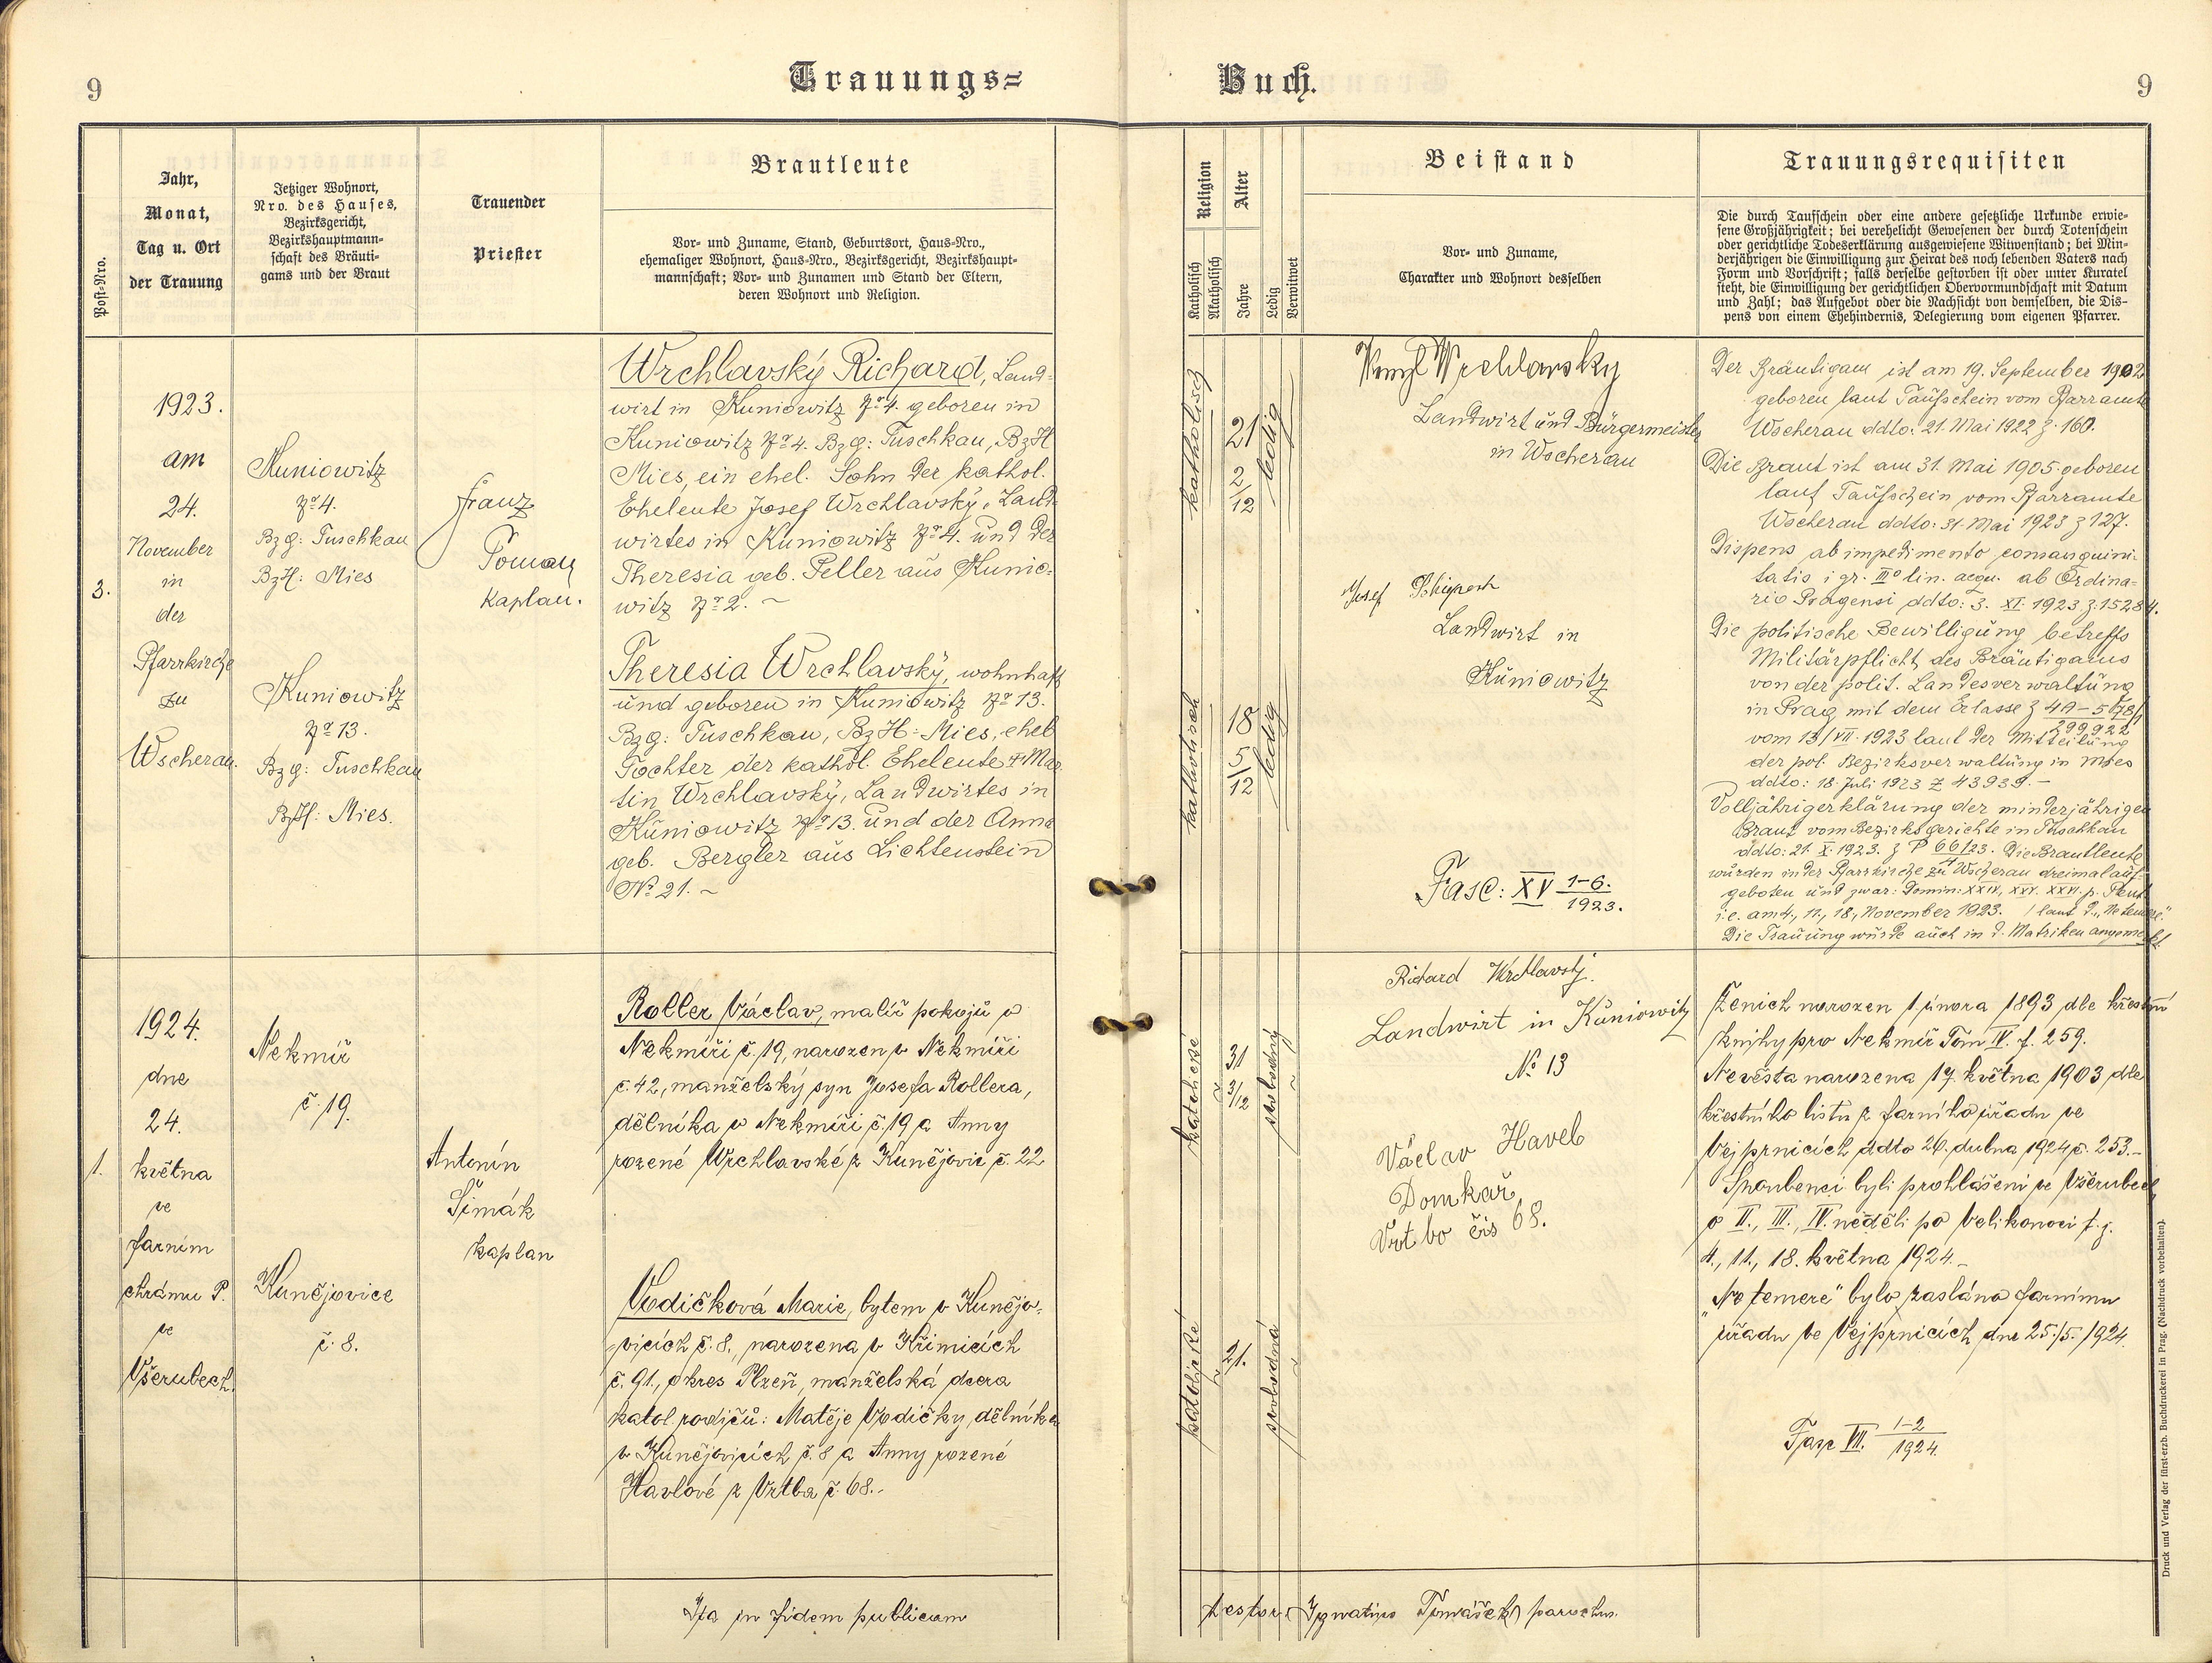 9
Trauungs=
Buch.
9
Post-Nro.
Jahr,
Monat,
Tag u. Ort
der Trauung
Jetziger Wohnort,
Nro. des Hauses,
Bezirksgericht,
Bezirkshauptmann-
schaft des Bräuti-
gams und der Braut
Trauender
Priester
Brautleute
Vor- und Zuname, Stand, Geburtsort, Haus-Nro.,
ehemaliger Wohnort, Haus-Nro., Bezirksgericht, Bezirkshaupt-
mannschaft; Vor- und Zunamen und Stand der Eltern,
deren Wohnort und Religion.
Religion
Katholisch
Akatholisch
Alter
Jahre
Ledig
Verwitwet
Beistand
Vor- und Zuname,
Charakter und Wohnort desselben
Trauungsrequisiten
Die durch Taufschein oder eine andere gesetzliche Urkunde erwie-
sene Großjährigkeit; bei verehelicht Gewesenen der durch Totenschein
oder gerichtliche Todeserklärung ausgewiesene Witwenstand; bei Min-
derjährigen die Einwilligung zur Heirat des noch lebenden Vaters nach
Form und Vorschrift; falls derselbe gestorben ist oder unter Kuratel
steht, die Einwilligung der gerichtlichen Obervormundschaft mit Datum
und Zahl; das Aufgebot oder die Nachsicht von demselben, die Dis-
pens von einem Ehehindernis, Delegierung vom eigenen Pfarrer.
3.
1923.
am
24.
November
in
der
Pfarrkirche
zu
Wscherau.
Kuniowitz
No 4.
Bzg: Tuschkau
BzH: Mies
Kuniowitz
No 13.
Bzg: Tuschkau
BzH: Mies.
Franz
Toman
Kaplan.
Wrchlavský Richard, Land-
wirt in Kuniowitz No 4. geboren in
Kuniowitz No 4. Bzg: Tuschkau, BzH
Mies, ein ehel. Sohn der kathol.
Eheleute Josef Wrchlavský, Land-
wirtes in Kuniowitz No 4. und der
Theresia geb. Peller aus Kunio-
witz No 2. ~
Theresia Wrchlavský, wohnhaft
und geboren in Kuniowitz No 13.
Bzg: Tuschkau, BzH: Mies, ehel
Tochter der kathol. Eheleute Mar
tin Wrchlavský, Landwirtes in
Kuniowitz No 13. und der Anna
geb. Bergler aus Lichtenstein
No 21. ~
katholisch
21 2/12
ledig
katholisch
18 5/12
ledig
Wrchlavsky
Landwirt und Bürgermeister
in Wscherau
Josef
Landwirt in
Kuniowitz
Fasc: XV 1-6. / 1923.
Der Bräutigam ist am 19. September 1902
geboren laut Taufschein vom Pfarramte
Wscherau ddto: 21. Mai 1922 z. 160.
Die Braut ist am 31. Mai 1905 geboren
laut Taufschein vom Pfarramte
Wscherau ddto: 31. Mai 1923 z 127.
Dispens ab impedimento consanguini-
tatis i gr. IIIo lin. aequ. ab Ordina-
rio Pragensi ddto: 3. XI. 1923 z. 15284.
Die politische Bewilligung betreffs
Militärpflicht des Bräutigams
von der polit. Landesverwaltung
in Prag mit dem Erlasse z
vom 13/VII. 1923 laut der Mitteilung
der pol. Bezirksverwaltung in Mies
ddto: 18. Juli 1923 Z 43939. –
Volljährigerklärung der minderjährigen
Braut vom Bezirksgerichte in Tuschkau
ddto: 21. X. 1923. z P 66/23. Die Brautleute
wurden in der Pfarrkirche zu Wscherau dreimal auf-
geboten und zwar: Domin: XXIV, XXV. XXVI. p. Pent.
i. e. am 4., 11., 18., November 1923. / laut d. „Ne temere."
Die Trauung wurde auch in d. Matriken angemerkt.
1.
1924.
dne
24.
května
ve
farním
chrámu P.
ve
Všerubech.
Nekmíř
č. 19.
Kunějovice
č. 8.
Antonín
Šimák
kaplan
Roller Václav, malíř pokojů v
Nekmíři č. 19, narozen v Nekmíři
č. 42, manželský syn Josefa Rollera,
dělníka v Nekmíři č. 19 a Anny
rozené Wrchlavské z Kunějovic č. 22
Vodičková Marie, bytem v Kunějo-
vicích č. 8., narozena v Křimicích
č. 91., okres Plzeň, manželská dcera
katol. rodičů: Matěje Vodičky, dělníka
v Kunějovicích č. 8 a Anny rozené
Havlové z Vrtba č. 68. -
katolické
31 3/12
svobodný
katolické
21.
svobodná
Richard Wrchlavský.
Landwirt in Kuniowitz
No 13
Václav Havel
Domkař
Vrtbo čís 68.
Ženich narozen 1. února 1893 dle křestní
knihy pro Nekmíř Tom IV. f. 259.
Nevěsta narozena 17. května 1903 dle
křestního listu z farního úřadu ve
Vejprnicích ddto 26. dubna 1924 č. 253. –
Snoubenci byli prohlášeni ve Všerubech
o II., III., IV. neděli po Velikonoci t. j.
4., 11., 18. května 1924. –
„Ne temere" bylo zasláno farnímu
úřadu ve Vejprnicích dne 25./5. 1924.
Fasc VII. 1-2 / 1924.
Ita in fidem publicam
testor: Ignatius Tomášek, parochus.
Druck und Verlag der fürst-erzb. Buchdruckerei in Prag. (Nachdruck vorbehalten).